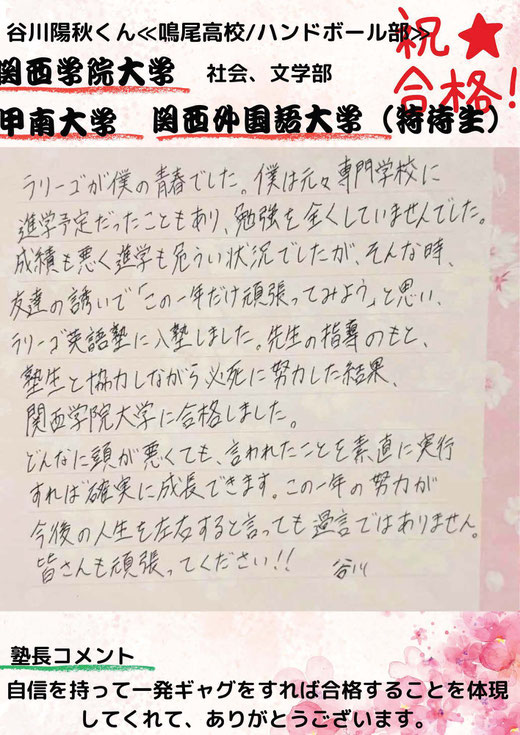 谷川陽秋くん≪鳴尾高校/ハンドボール部≫
祝★
合格!
関西学院大学 社会、文学部
甲南大学 関西外国語大学(特待生)
ラリーゴが僕の青春でした。僕は元々専門学校に
進学予定だったこともあり、勉強を全くしていませんでした。
成績も悪く進学も危うい状況でしたが、そんな時、
友達の誘いで「この一年だけ頑張ってみよう」と思い、
ラリーゴ英語塾に入塾しました。先生の指導のもと、
塾生と協力しながら必死に努力した結果、
関西学院大学に合格しました。
どんなに頭が悪くても、言われたことを素直に実行
すれば確実に成長できます。この一年の努力が
今後の人生を左右すると言っても過言ではありません。
皆さんも頑張ってください!! 谷川
塾長コメント
自信を持って一発ギャグをすれば合格することを体現
してくれて、ありがとうございます。